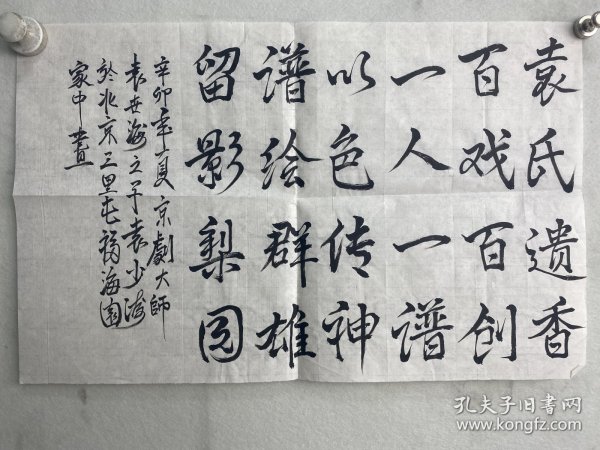 袁氏遗香
百戏百创
一人一谱
以色传神
谱绘群雄
留影梨园
辛卯年夏京劇大師
袁世海之子袁少海
於北京三里屯稻海園
家中書
孔夫子旧书网
www.kongfz.com